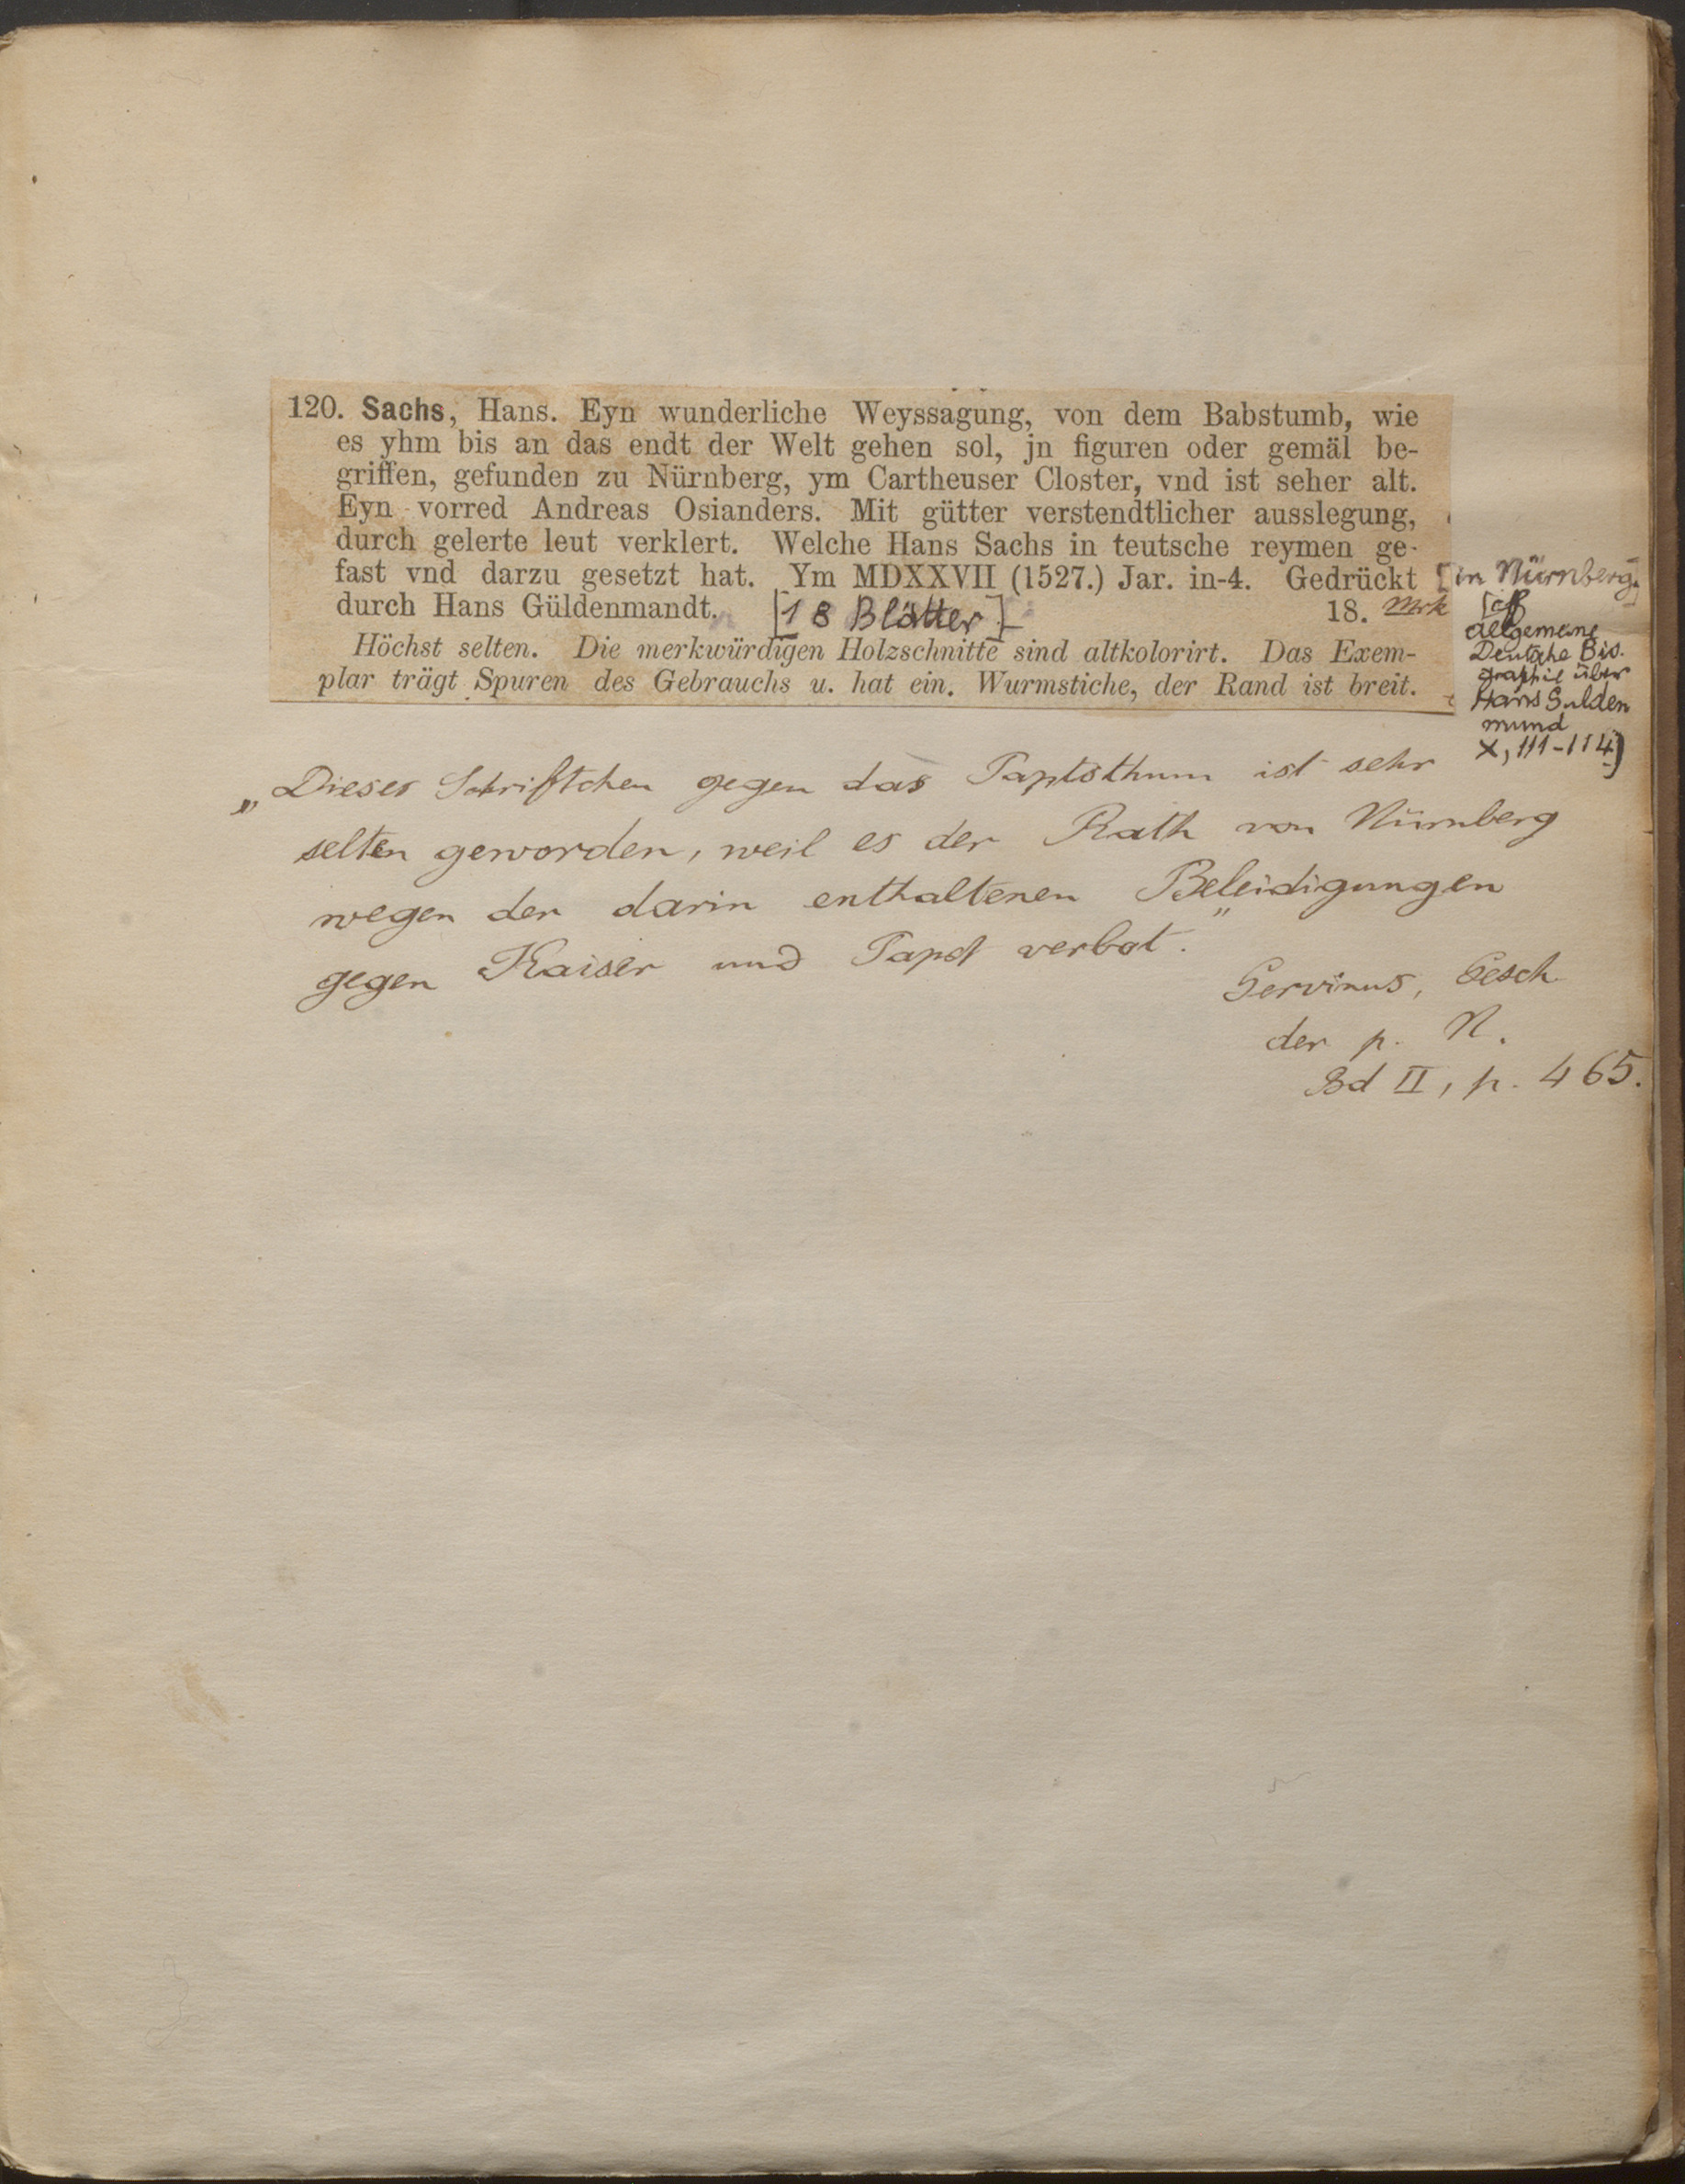 120. Sachs, Hans. Eyn wunderliche Weyssagung, von dem Babstumb, wie
es yhm bis an das endt der Welt gehen sol, jn figuren oder gemäl be-
griffen, gefunden zu Nürnberg, ym Cartheuser Closter, vnd ist seher alt.
Eyn vorred Andreas Osianders. Mit gütter verstendtlicher ausslegung,
durch gelerte leut verklert. Welche Hans Sachs in teutsche reymen ge-
fast vnd darzu gesetzt hat. Ym MDXXVII (1527.) Jar. in-4. Gedrückt [in Nürnberg.]
durch Hans Güldenmandt. [18 Blätter] 18. Mrk
Höchst selten. Die merkwürdigen Holzschnitte sind altkolorirt. Das Exem-
plar trägt Spuren des Gebrauchs u. hat ein. Wurmstiche, der Rand ist breit.
(cf
allgemeine
Deutsche Bio.
graphie über
Hans Gulden
mund
X, 111-114)
„Dieses Schriftchen gegen das Paptsthum ist sehr
selten geworden, weil es der Rath von Nürnberg
wegen der darin enthaltenen Beleidigungen
gegen Kaiser und Papst verbot."
Gervinus, Gesch
der p. N.
Bd II, p. 465.